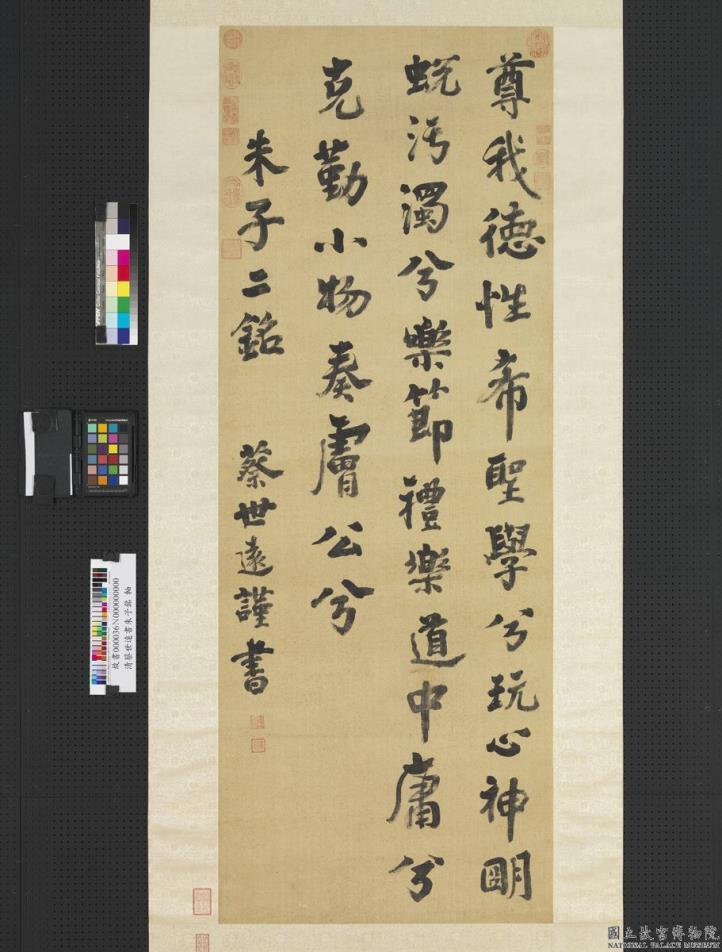 尊我德性希聖學兮玩心神明
蛻污濁兮樂節禮樂道中庸兮
克勤小物奏膚公兮
朱子二銘
蔡世遠謹書
故書000036N000000000
清蔡世遠書朱子銘 軸
國立故宮博物院
NATIONAL PALACE MUSEUM